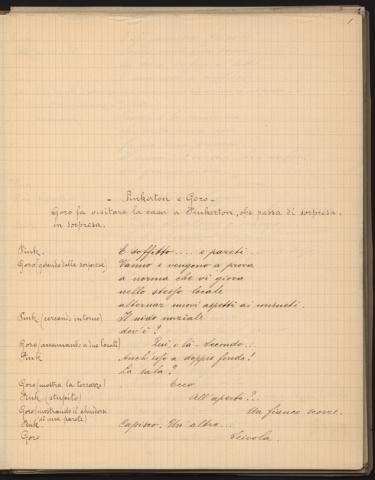 1
- Pinkerton e Goro -
Goro fa visitare la casa a Pinkerton, che passa di sorpresa
in sorpresa.
Pink. E soffitto.... e pareti...
Goro (godendo delle sorprese) Vanno e vengono a prova
a norma che vi giova
nello stesso locale
alternar nuovi aspetti ai consueti.
Pink (cercando intorno) Il nido nuziale
dov'è?
Goro (accennando a due locali) Qui, o là... secondo...
Pink Anch'esso a doppio fondo!
La sala?
Goro (mostra la terrazza) Ecco.
Pink (stupito) All'aperto?..
Goro (mostrando il chiudersi Un fianco scorre.
di una parete)
Pink. Capisco. Un altro...
Goro Scivola.